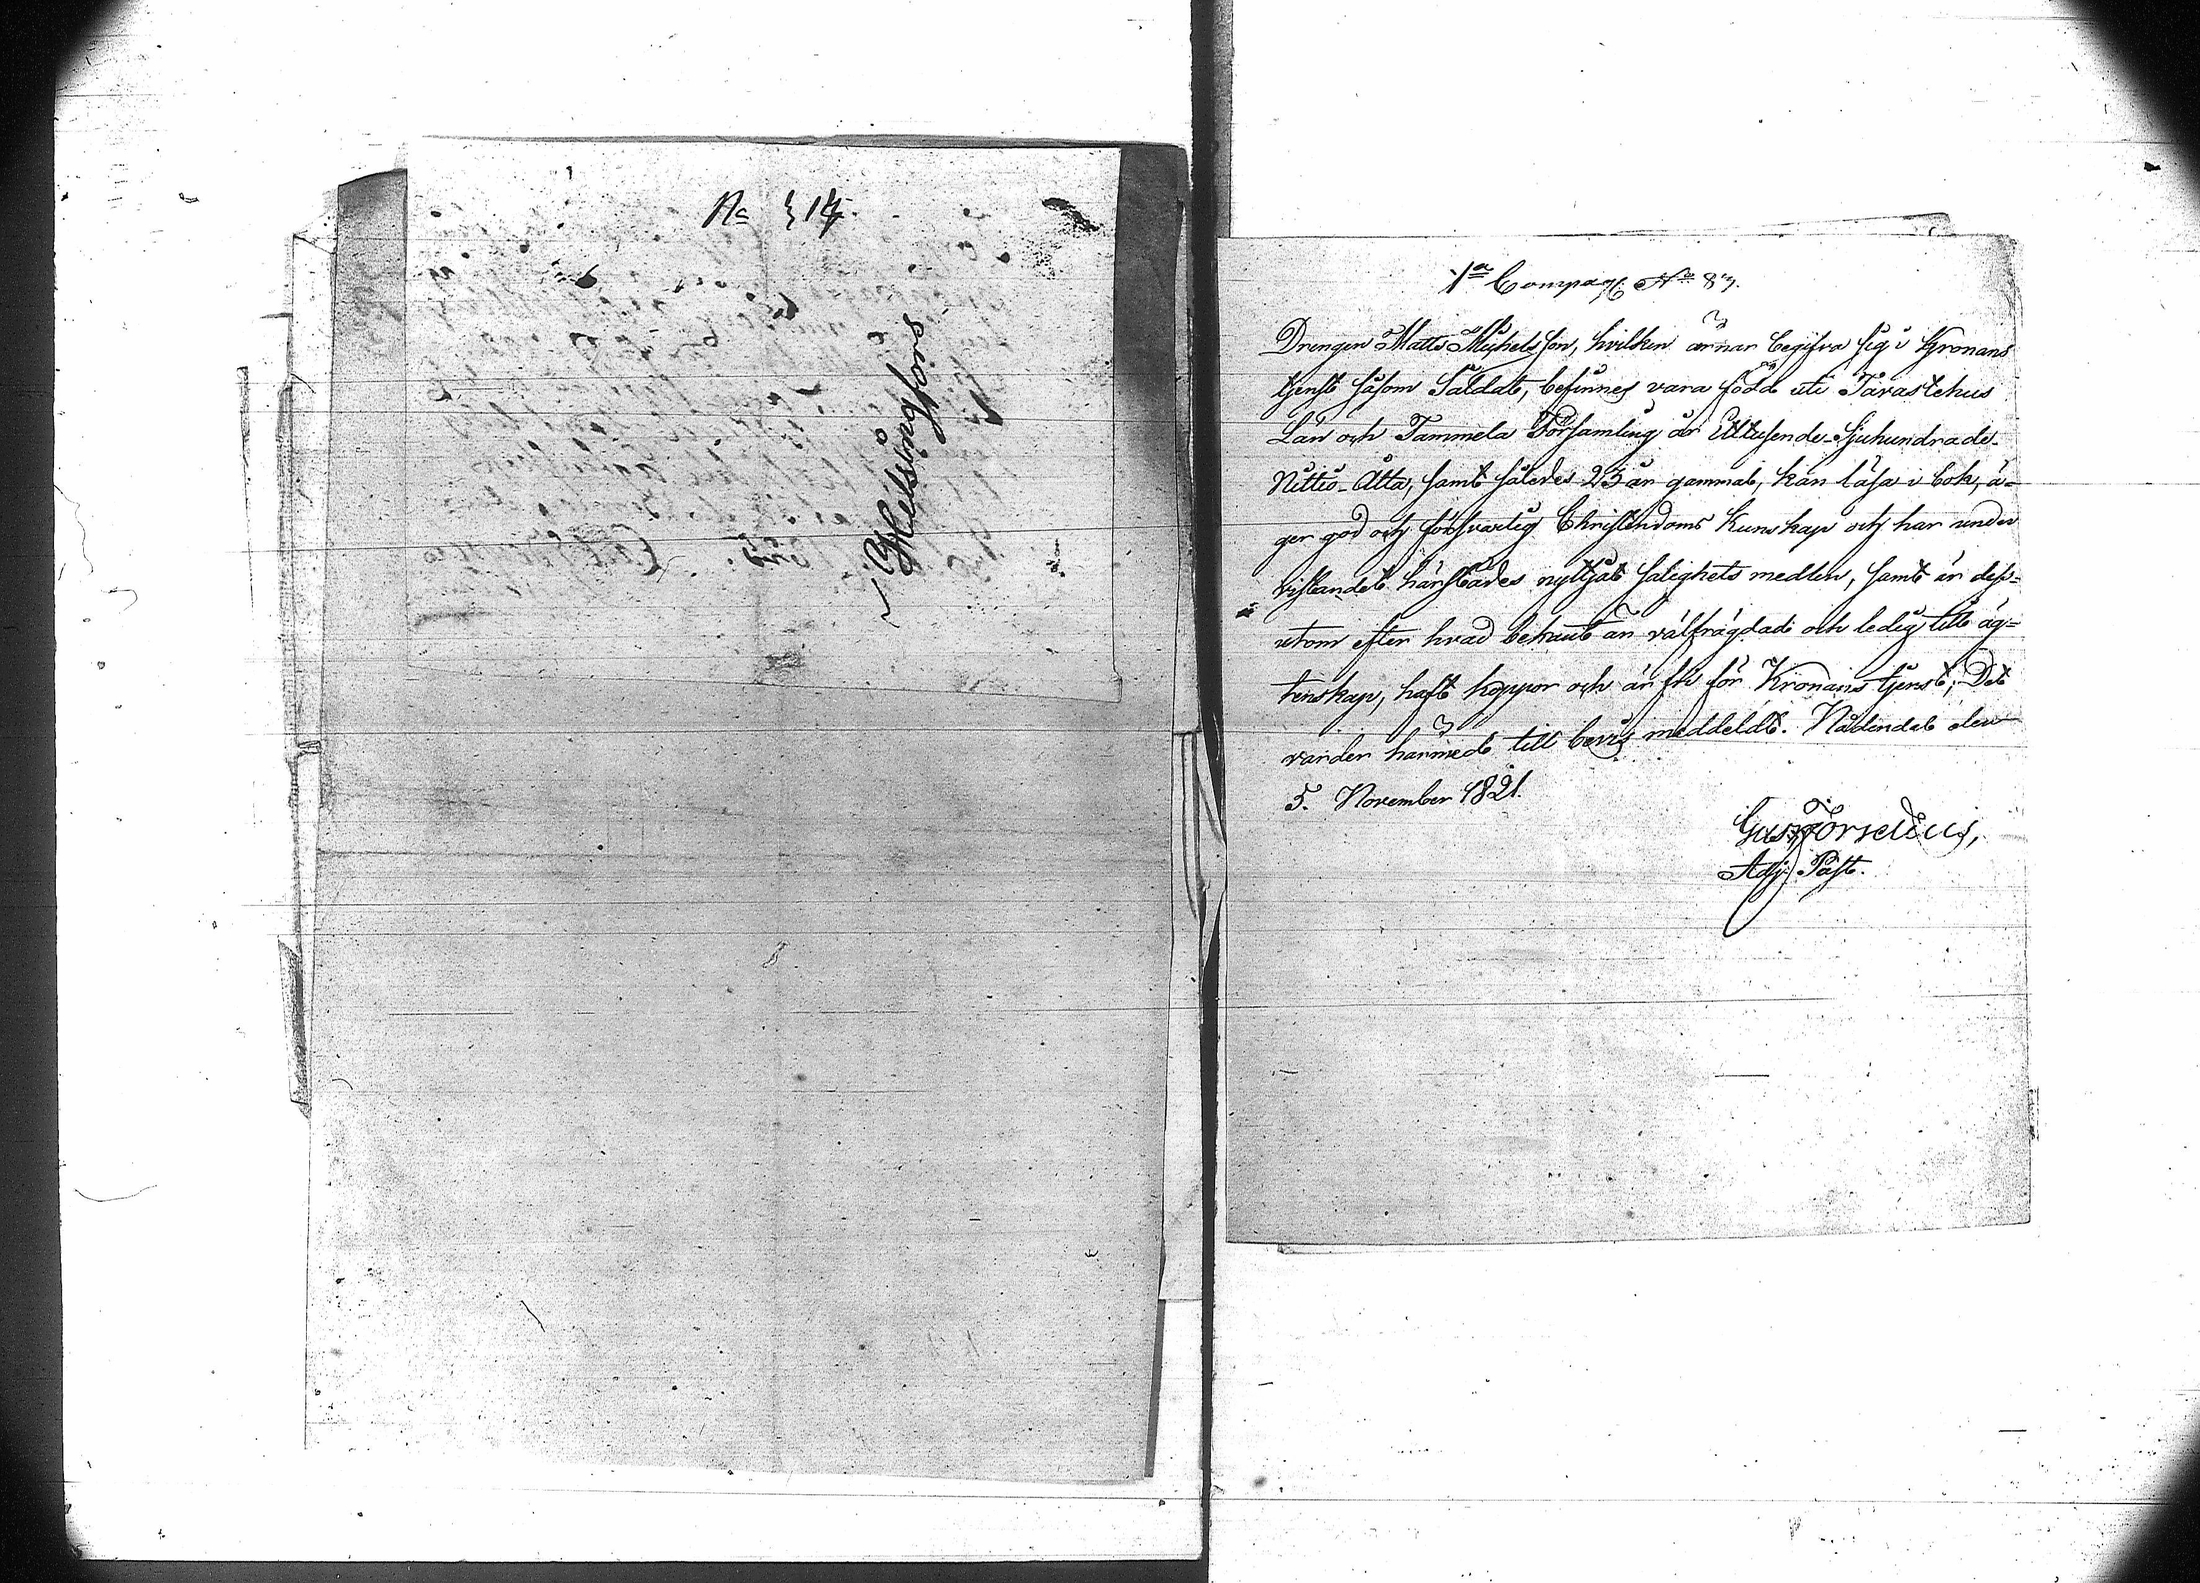 No 314.
Helsingfors
1a Compag. No 87.
Drengen Matts Michelsson, hvilken ärnar begifva sig i Kronans
tjenst såsom Saldat, befinnes vara född uti Tavastehus
Län och Tammela Församling år Ettusende-Sjuhundrade-
Nittio-Åtta, samt således 23 år gammal, kan läsa i bok, ä-
ger god och försvarlig Christendoms Kunskap och har under
vistandet härstädes nyttjat salighets medlen, samt är dess-
utom efter hvad bekant är välfrägdad och ledig till äg-
tenskap, haft koppor och är fri för Kronans tjenst; Det
varder härmed till bevis meddeldt. Nådendal den
5. November 1821.
Gust Forselius,
Adj. Past.